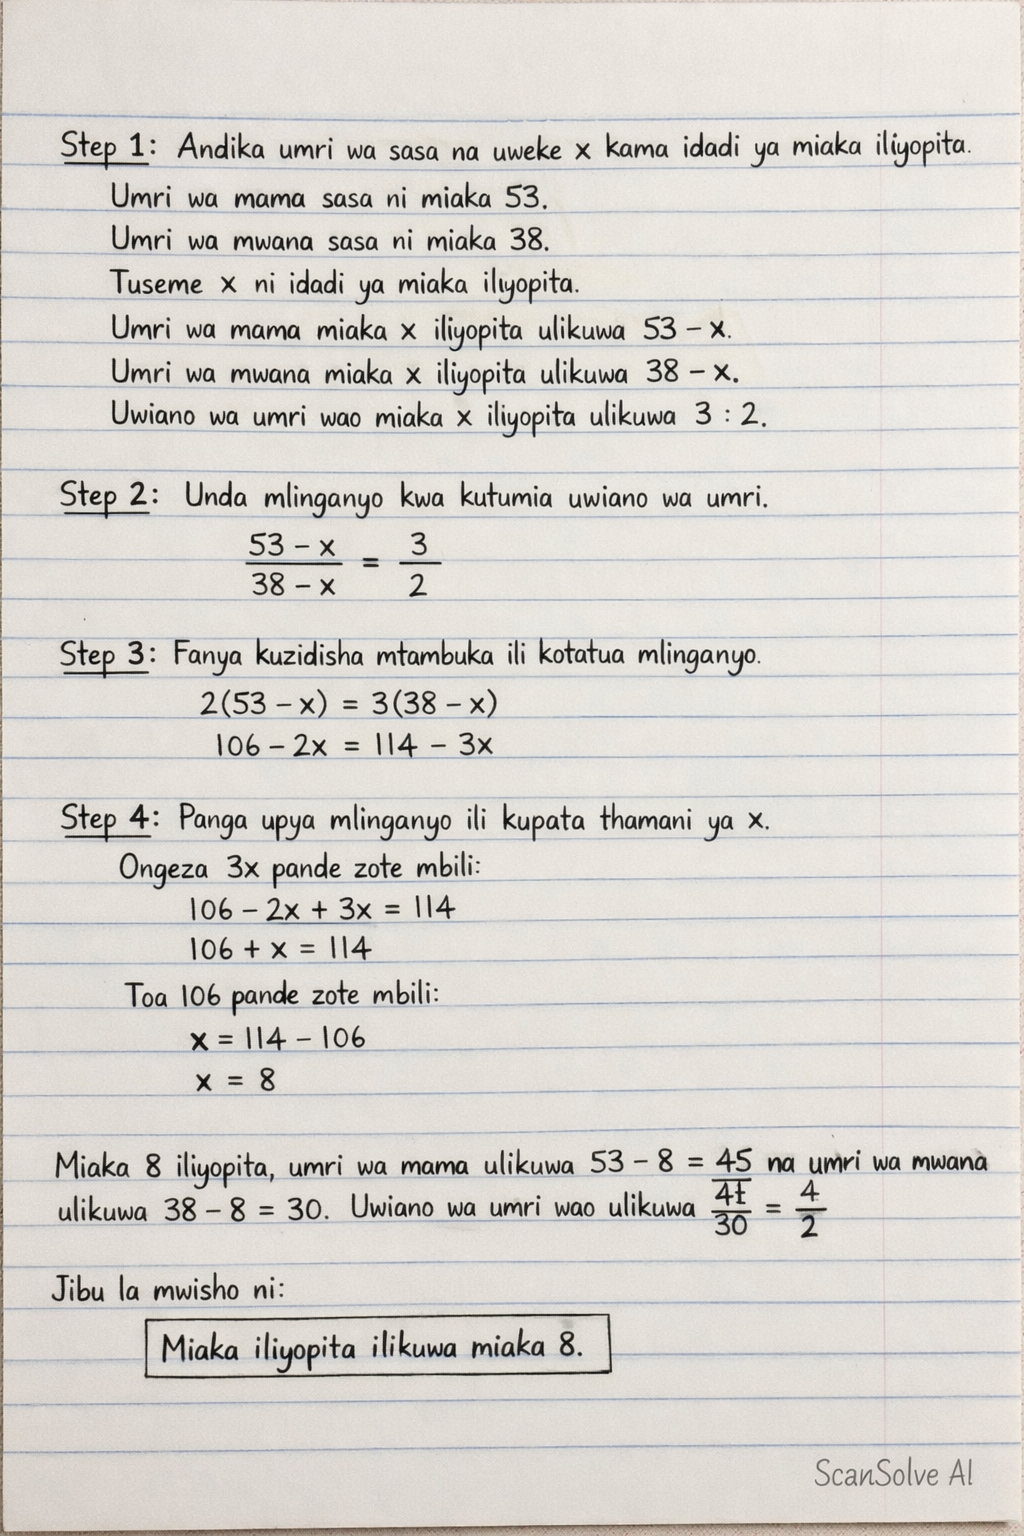 Step 1: Andika umri wa sasa na uweke x kama idadi ya miaka iliyopita.
Umri wa mama sasa ni miaka 53.
Umri wa mwana sasa ni miaka 38.
Tuseme x ni idadi ya miaka iliyopita.
Umri wa mama miaka x iliyopita ulikuwa 53 – x.
Umri wa mwana miaka x iliyopita ulikuwa 38 – x.
Uwiano wa umri wao miaka x iliyopita ulikuwa 3 : 2.
Step 2: Unda mlinganyo kwa kutumia uwiano wa umri.
53 – x / 38 – x = 3 / 2
Step 3: Fanya kuzidisha mtambuka ili kotatua mlinganyo.
2(53 – x) = 3(38 – x)
106 – 2x = 114 – 3x
Step 4: Panga upya mlinganyo ili kupata thamani ya x.
Ongeza 3x pande zote mbili:
106 – 2x + 3x = 114
106 + x = 114
Toa 106 pande zote mbili:
x = 114 – 106
x = 8
Miaka 8 iliyopita, umri wa mama ulikuwa 53 – 8 = 45 na umri wa mwana
ulikuwa 38 – 8 = 30. Uwiano wa umri wao ulikuwa /30 = 4/2
Jibu la mwisho ni:
Miaka iliyopita ilikuwa miaka 8.
ScanSolve AI